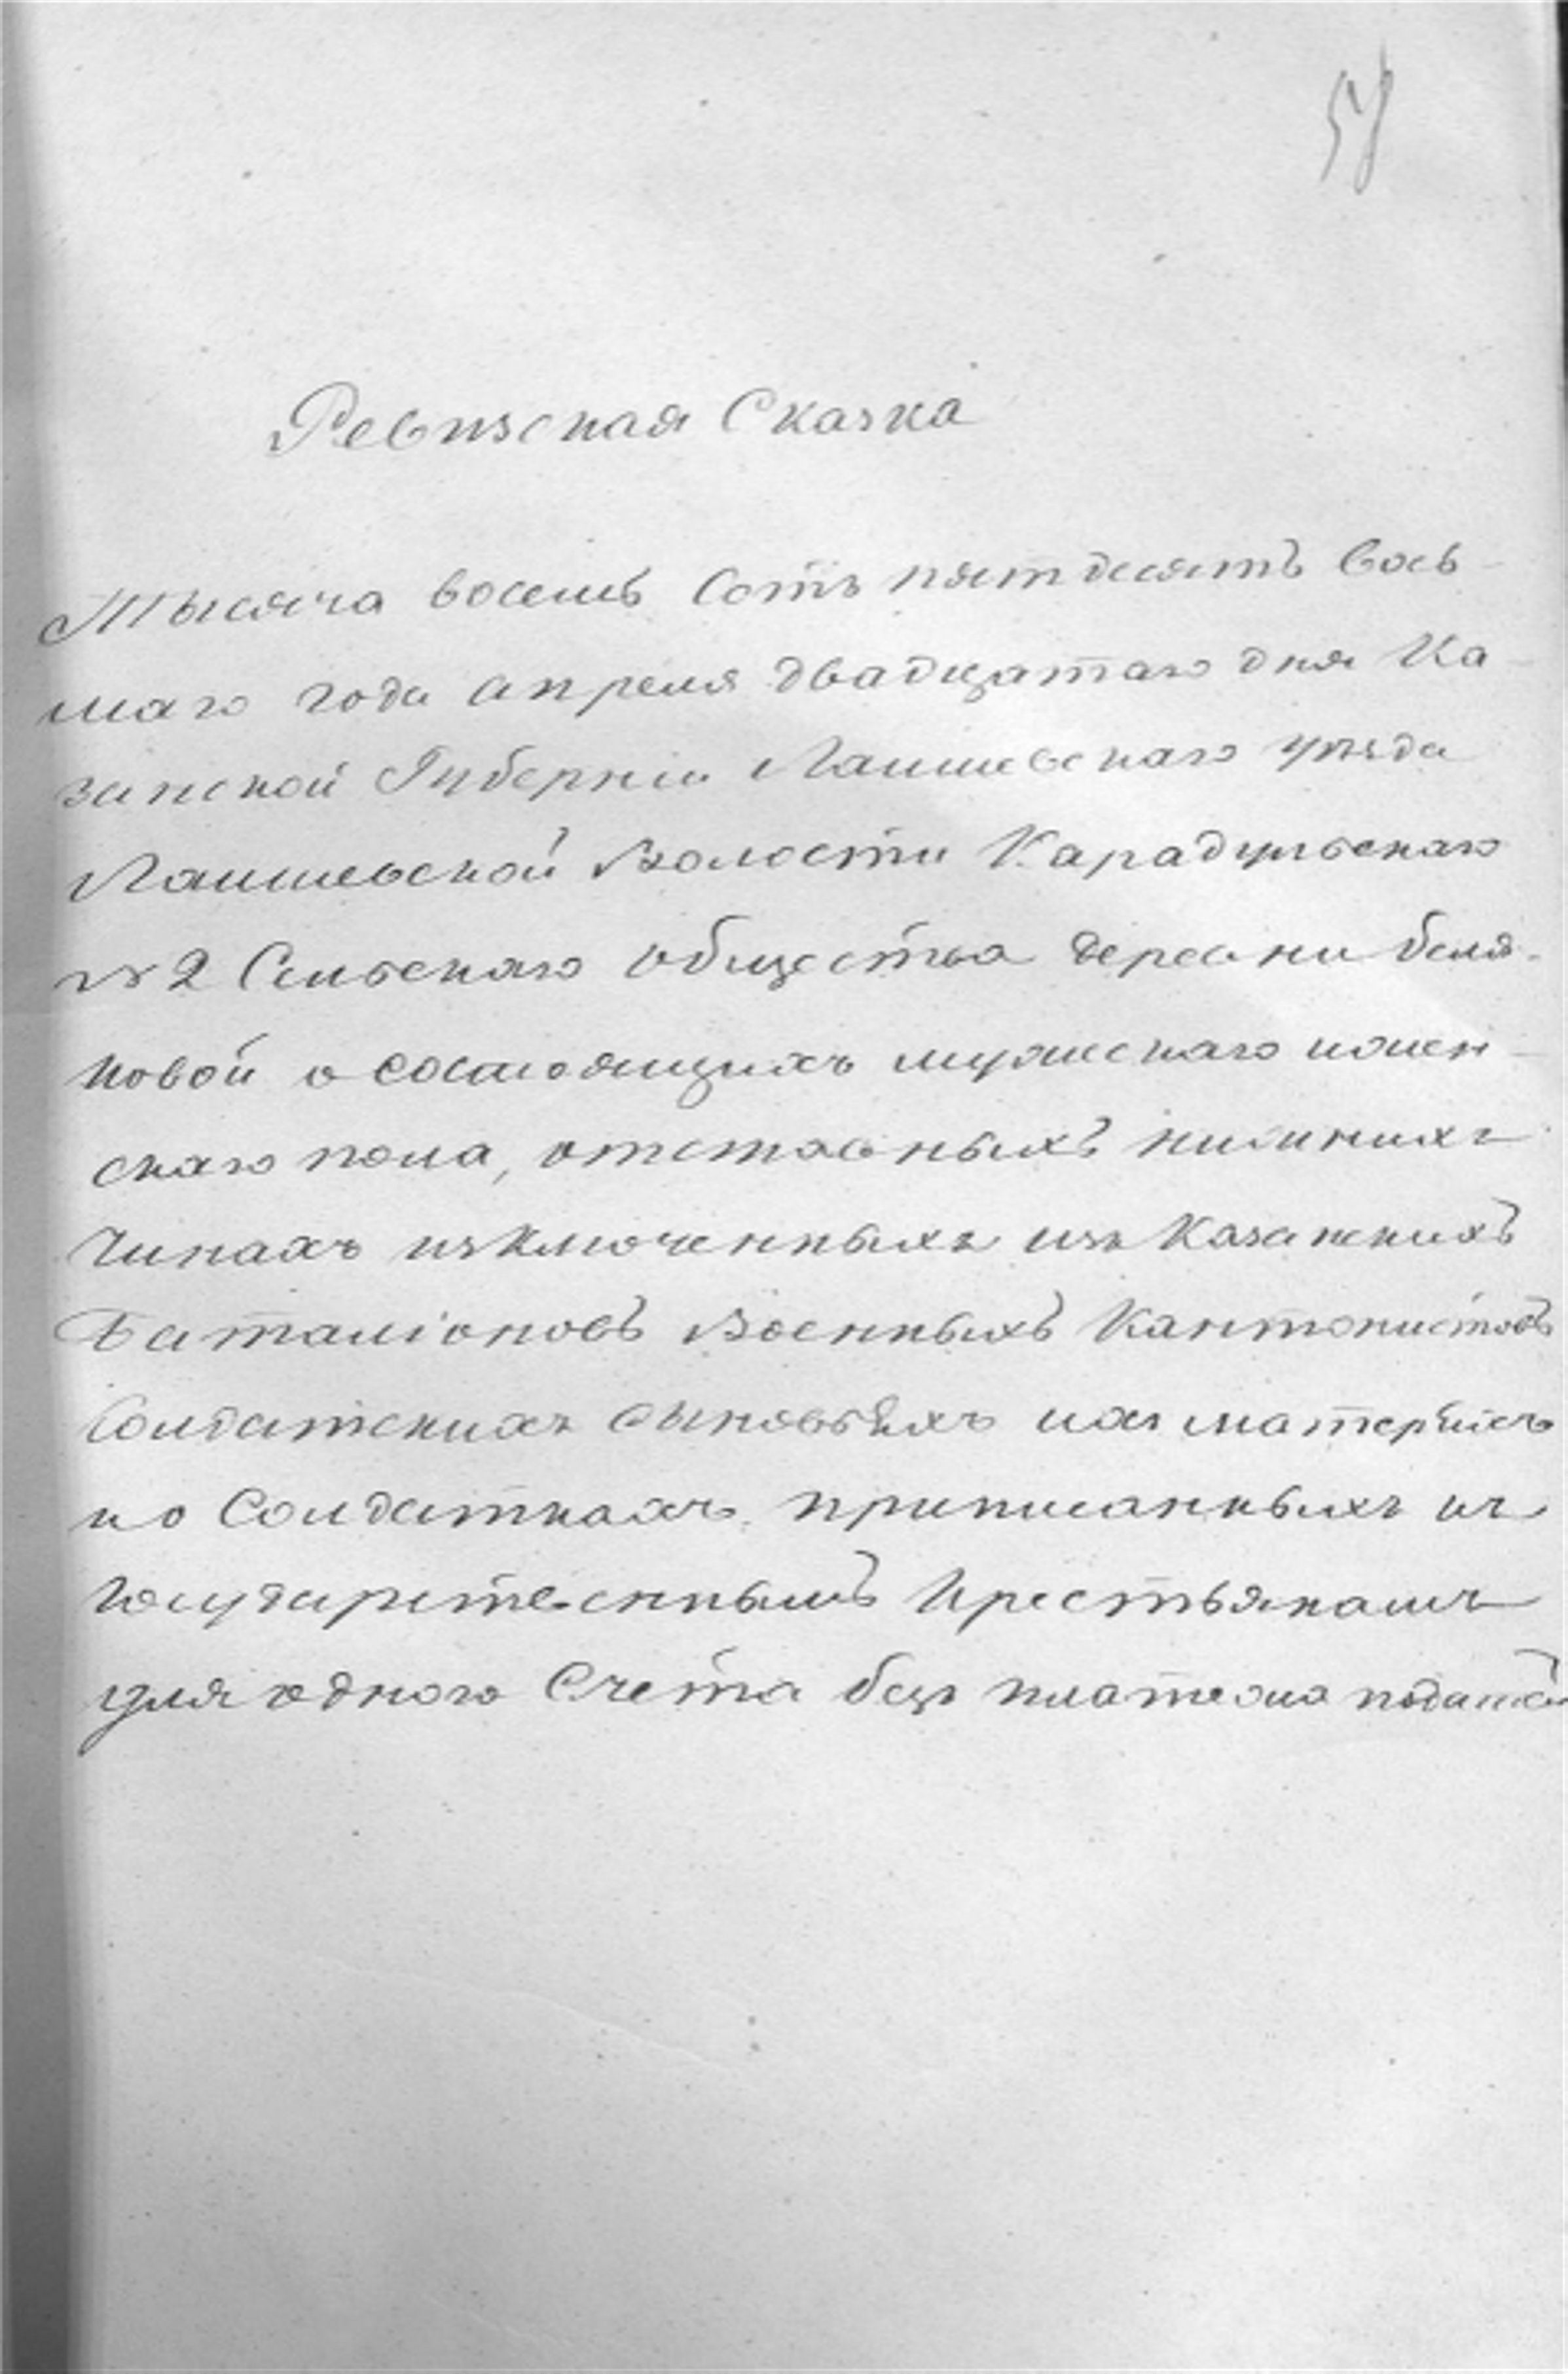 Ревизская Сказка
Тысяча восемь Сотъ пятдесятъ вось-
маго года апреля двадцатаго дня Ка-
занской Губерніи Лаишевскаго уѣзда
Лаишевской Волости Карадульскаго
№ 2 Сельскаго общества деревни беля-
ковой о состоящихъ мужескаго ижен-
скаго пола, отставныхъ нижнихъ
Чинахъ изключенныхъ изъ Казанскихъ
Баталіоновъ Военныхъ Кантонистовъ
Солдатскихъ сыновьяхъ ихъ матеряхъ
и о Солдаткахъ приписанныхъ къ
Государственнымъ Крестьянамъ
для одного Счета безъ платежа податей